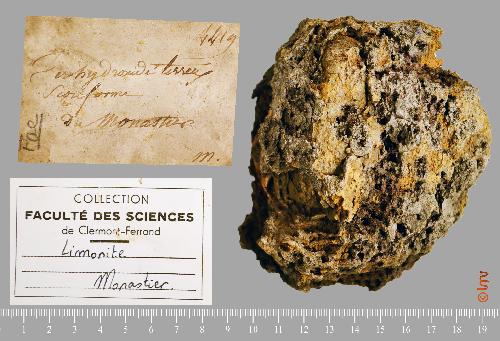 4419
Fer hydroxidé terreux
Scoriforme
Du Monastier
m.
COLLECTION
FACULTÉ DES SCIENCES
de Clermont-Ferrand
Limonite
Monastier.
0 1 2 3 4 5 6 7 8 9 10 11 12 13 14 15 16 17 18 19